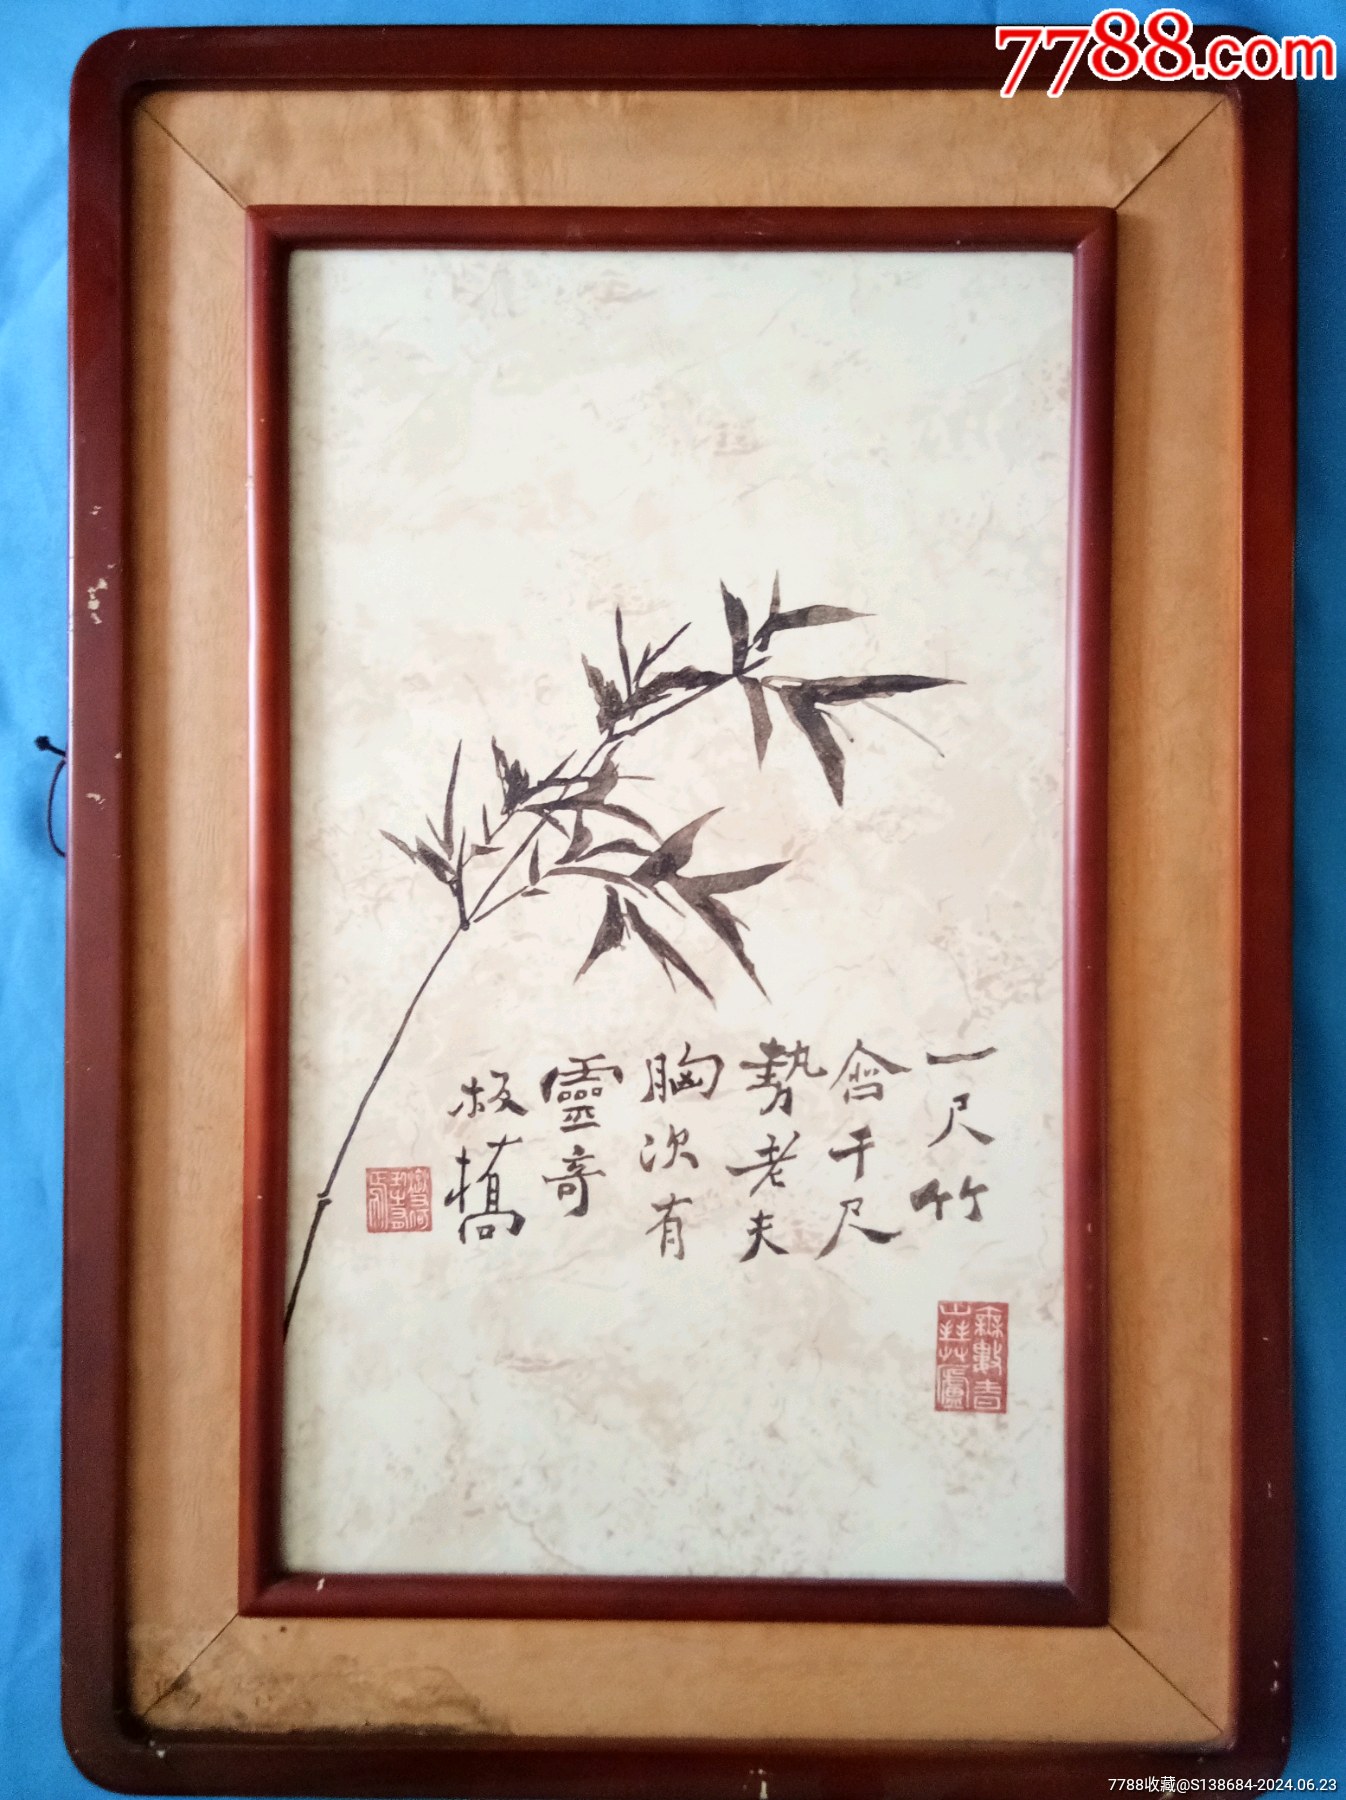 7788.com
一尺竹
會千尺
勢老夫
胸次有
靈奇
板橋
7788收藏@S138684-2024.06.23